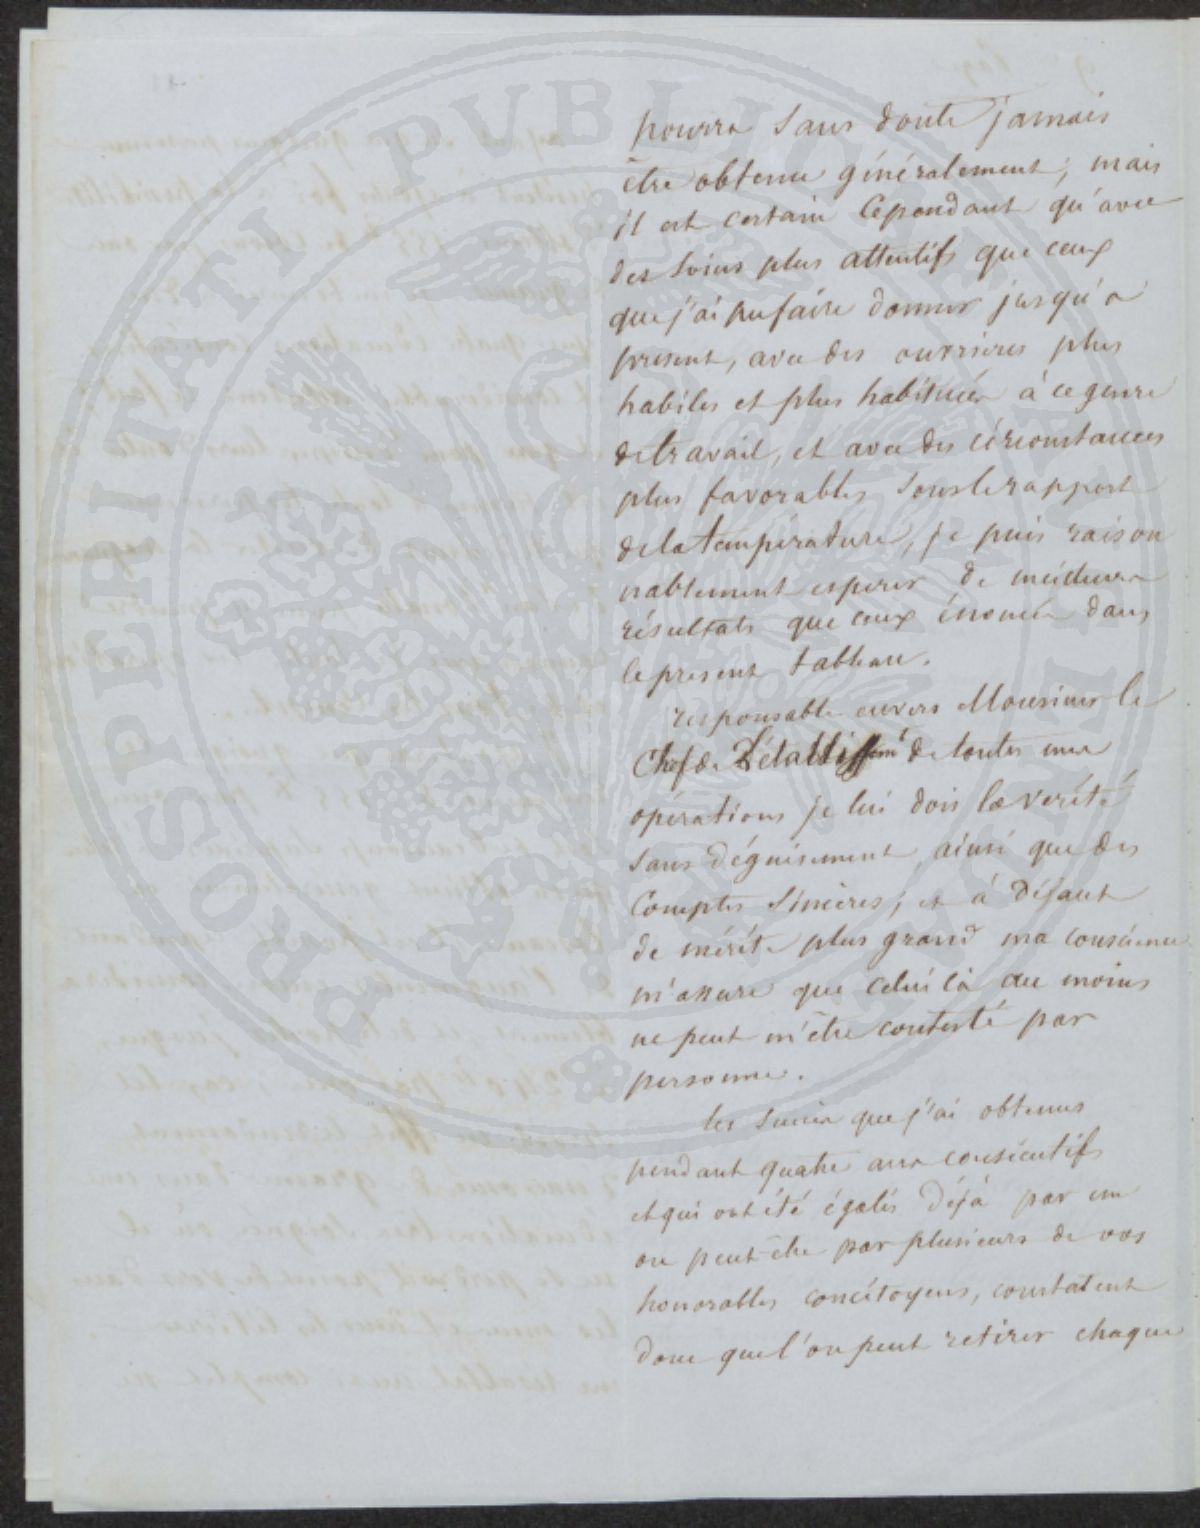 PROSPERITATI PUBLICAE
pourra sans doute jamais
être obtenue généralement; mais
il est certain cependant qu'avec
des soins plus attentifs que ceux
que j'ai pu faire donner jusqu'à
présent, avec des ouvrières plus
habiles et plus habituées à ce genre
de travail, et avec des circonstances
plus favorables sous le rapport
de la température, je puis raison
nablement esperer de meilleurs
résultats que ceux énoncés dans
le présent tableau.
responsable envers Monsieur le
Chef de l'établissemt de toutes mes
opérations je lui dois la vérité
sans déguisement, ainsi que des
Comptes sincères; et à défaut
de mérite plus grand ma conscience
m'assure que celui là au moins
ne peut m'être contesté par
personne.
les succès que j'ai obtenus
pendant quatre ans consécutifs
et qui ont été égalés déjà par un
ou peut-être par plusieurs de vos
honorables concitoyens, constatent
donc que l'on peut retirer chaque